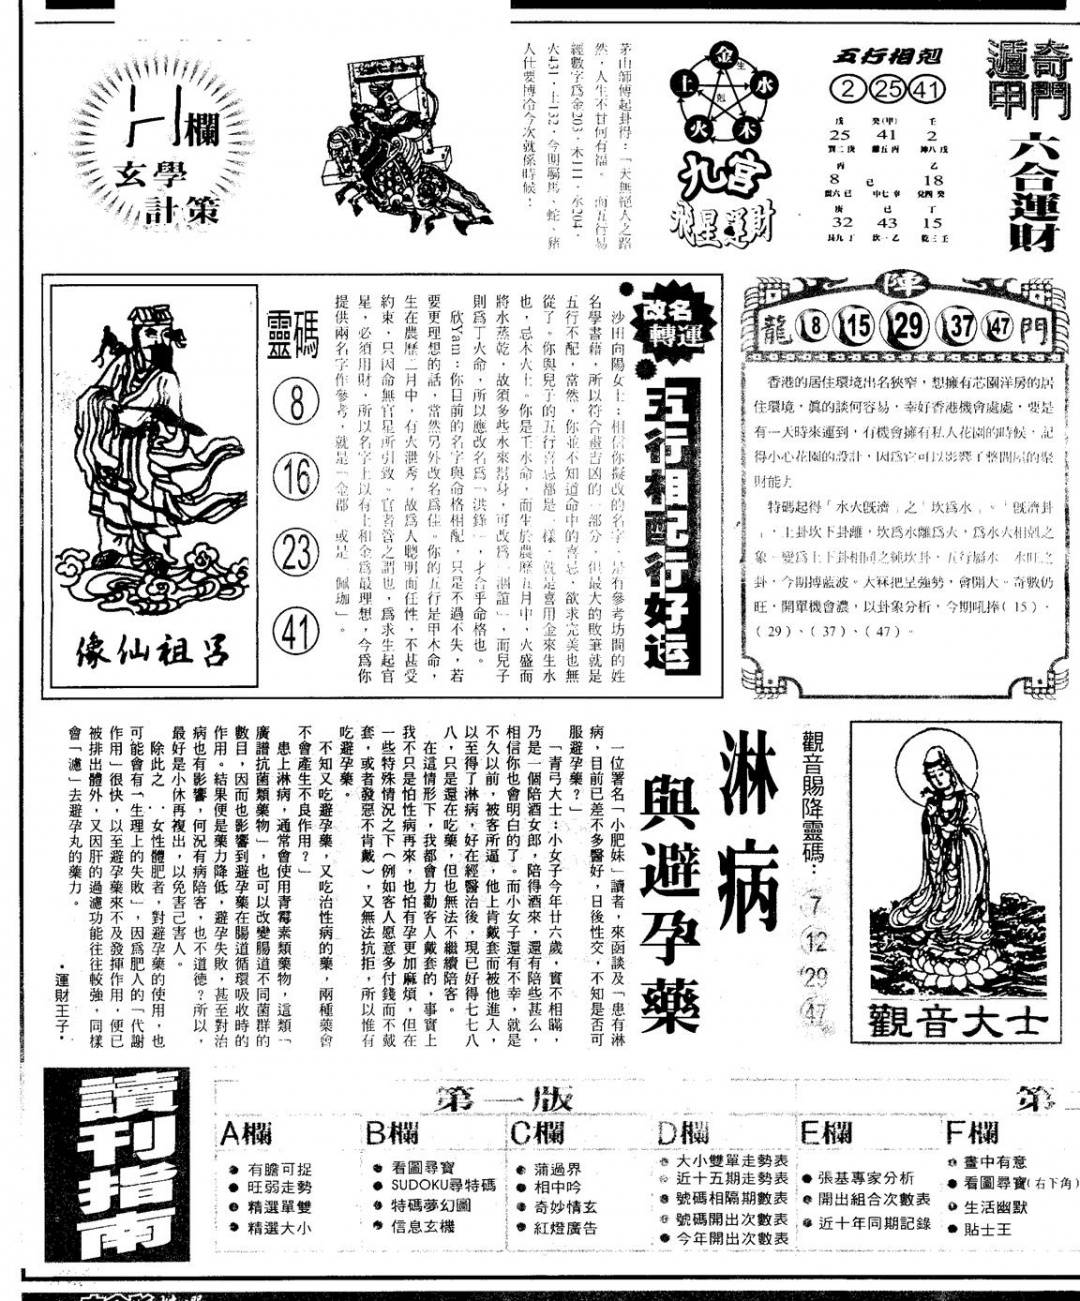 奇門
遁甲
六合運財
五行相剋
2 25 41
戊 癸(甲) 壬
25 41 2
巽二庚 離五丙 坤八戊
丙 乙
8 己 18
震六己 中七辛 兌四癸
庚 己 丁
32 43 15
艮九丁 坎一乙 乾三壬
金
生
土
水
剋
火
木
九宮
飛星運財
茅山師傅起卦得：「天無絕人之路
然，人生不甘何有福。」而五行易
經數字為金203，木111，水204，
火431，土132，今期屬馬、蛇、豬
人仕要博冷今次就係時候！
H欄
玄學
計策
陣
龍 8 15 29 37 47 門
香港的居住環境出名狹窄，想擁有芯園洋房的居
住環境，真的談何容易，幸好香港機會處處，要是
有一天時來運到，有機會擁有私人花園的時候，記
得小心花園的設計，因為它可以影響了整間屋的聚
財能力
特碼起得「水火既濟」之「坎為水」。「既濟卦
」，上卦坎下卦離，坎為水離為火，為水火相剋之
象，變為上下卦相同之純坎卦，五行屬水，水旺之
卦，今期搏藍波。大冧把呈強勢，會開大。奇數仍
旺，開單機會濃，以卦象分析，今期吼捧（15）、
（29）、（37）、（47）。
改名
轉運
五行相配行好运
沙田向陽女士：相信你擬改的名字，是有參考坊間的姓
名學書籍，所以符合畫吉凶的一部分，但最大的敗筆就是
五行不配，當然，你並不知道命中的喜忌，欲求完美也無
從了。你與兒子的五行喜忌都是一樣，就是喜用金來生水
也，忌木火土。你是壬水命，而生於農歷五月中，火盛而
將水蒸乾，故須多些水來幫身，可改為「涸誼」，而兒子
則為丁火命，所以應改名為「洪鋒」，才合乎命格也。
欣Yam：你目前的名字與命格相配，只是不過不失，若
要更理想的話，當然另外改名為佳。你的五行是甲木命，
生在農歷二月中，有火泄秀，故為人聰明而任性，不甚受
約束，只因命無官星所引致。官者管之謂也，為求生起官
星，必須用財，所以名字上以有土和金為最理想，今為你
提供兩名字作參考，就是「金郡」或是「佩珈」。
靈碼
8
16
23
41
呂祖仙像
觀音賜降靈碼：
7
12
29
47
觀音大士
淋病
與避孕藥
一位署名「小肥妹」讀者，來函談及「患有淋
病，目前已差不多醫好，日後性交，不知是否可
服避孕藥？」
「青弓大士：小女子今年廿六歲，實不相瞞，
乃是一個陪酒女郎，陪得酒來，還有陪些甚么，
相信你也會明白的了。而小女子還有不幸，就是
不久以前，被客所逼，他上肯戴套而被他進人，
以至得了淋病，好在經醫治後，現已好得七七八
八，只是還在吃藥，但也無法不繼續陪客。
在這情形下，我都會力勸客人戴套的，事實上
我不只是怕性病再來，也怕有孕更加麻煩，但在
一些特殊情況之下（例如客人愿意多付錢而不戴
套，或者發惡不肯戴），又無法抗拒，所以惟有
吃避孕藥。
不知又吃避孕藥，又吃治性病的藥，兩種藥會
不會產生不良作用？」
患上淋病，通常會使用青霉素類藥物，這類「
廣譜抗菌類藥物」，也可以改變腸道不同菌群的
數目，因而也影響到避孕藥在腸道循環吸收時的
作用。結果便是藥力降低，避孕失敗，甚至對治
病也有影響，何況有病陪客，也不道德？所以，
最好是小休再複出，以免害己害人。
除此之 女性體肥者，對避孕藥的使用，也
可能會有「生理上的失敗」，因為肥人的「代謝
作用」很快，以至避孕藥來不及發揮作用，便已
被排出體外，又因肝的過濾功能往往較強，同樣
會「濾」去避孕丸的藥力。
・運財王子・
讀刊指南
第一版
第二
A欄
有膽可捉
旺弱走勢
精選單雙
精選大小
B欄
看圖尋寶
SUDOKU尋特碼
特碼夢幻圖
信息玄機
C欄
蒲過界
相中吟
奇妙情玄
紅燈廣告
D欄
大小雙單走勢表
近十五期走勢表
號碼相隔期數表
號碼開出次數表
今年開出次數表
E欄
張基專家分析
開出組合次數表
近十年同期記錄
F欄
畫中有意
看圖尋寶(右下角)
生活幽默
貼士王